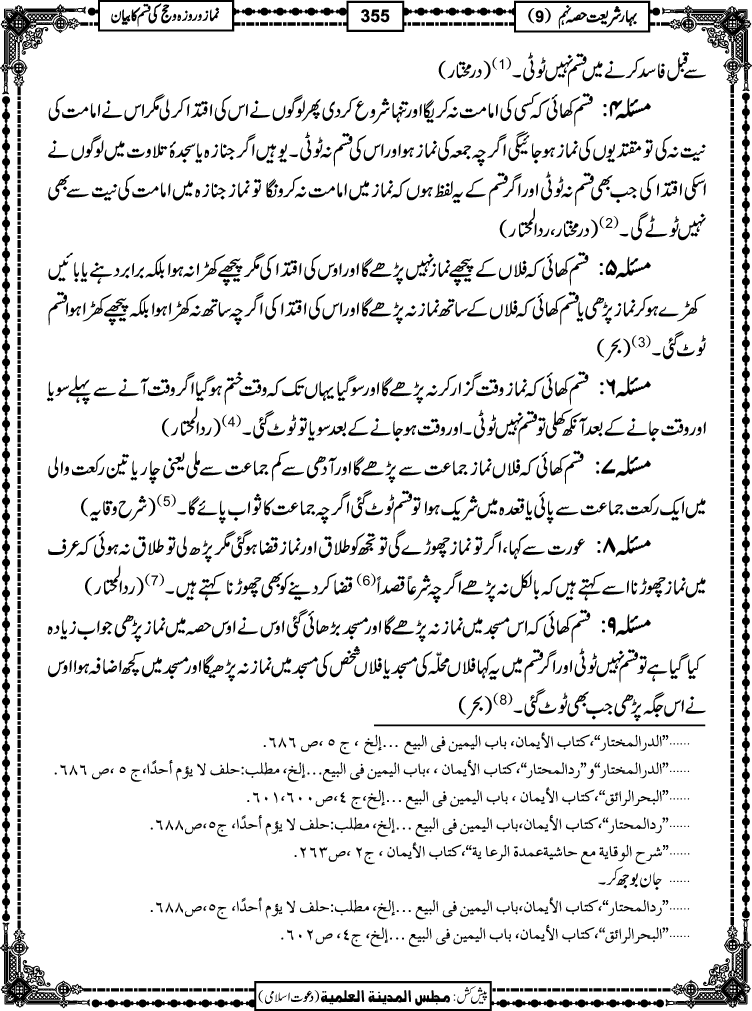 بہار شریعت حصہ نہم (9)
355
نماز و روزہ و حج کی قسم کا بیان
سے قبل فاسد کرنے میں قسم نہیں ٹوٹی۔(1) (درمختار)
مسئلہ ۴: قسم کھائی کہ کسی کی امامت نہ کریگا اور تنہا شروع کردی پھر لوگوں نے اس کی اقتدا کرلی مگر اس نے امامت کی
نیت نہ کی تو مقتدیوں کی نماز ہو جائیگی اگرچہ جمعہ کی نماز ہو اور اس کی قسم نہ ٹوٹی۔ یو ہیں اگر جنازہ یا سجدۂ تلاوت میں لوگوں نے
اسکی اقتدا کی جب بھی قسم نہ ٹوٹی اور اگر قسم کے یہ لفظ ہوں کہ نماز میں امامت نہ کرونگا تو نماز جنازہ میں امامت کی نیت سے بھی
نہیں ٹوٹے گی۔(2) (درمختار، ردالمحتار)
مسئلہ ۵: قسم کھائی کہ فلاں کے پیچھے نماز نہیں پڑھے گا اور اوس کی اقتدا کی مگر پیچھے کھڑا نہ ہوا بلکہ برابر دہنے یا بائیں
کھڑے ہو کر نماز پڑھی یا قسم کھائی کہ فلاں کے ساتھ نماز نہ پڑھے گا اور اس کی اقتدا کی اگرچہ ساتھ نہ کھڑا ہوا بلکہ پیچھے کھڑا ہوا قسم
ٹوٹ گئی۔(3) (بحر)
مسئلہ ۶: قسم کھائی کہ نماز وقت گزار کر نہ پڑھے گا اور سوگیا یہاں تک کہ وقت ختم ہوگیا اگر وقت آنے سے پہلے سویا
اور وقت جانے کے بعد آنکھ کھلی تو قسم نہیں ٹوٹی۔ اور وقت ہو جانے کے بعد سویا تو ٹوٹ گئی۔(4) (ردالمحتار)
مسئلہ ۷: قسم کھائی کہ فلاں نماز جماعت سے پڑھے گا اور آدھی سے کم جماعت سے ملی یعنی چار یا تین رکعت والی
میں ایک رکعت جماعت سے پائی یا قعدہ میں شریک ہوا تو قسم ٹوٹ گئی اگرچہ جماعت کا ثواب پائے گا۔(5) (شرح وقایہ)
مسئلہ ۸: عورت سے کہا، اگر تو نماز چھوڑے گی تو تجھ کو طلاق اور نماز قضا ہوگئی مگر پڑھ لی تو طلاق نہ ہوئی کہ عرف
میں نماز چھوڑنا اسے کہتے ہیں کہ بالکل نہ پڑھے اگرچہ شرعاً قصداً(6) قضا کر دینے کو بھی چھوڑنا کہتے ہیں۔(7) (ردالمحتار)
مسئلہ ۹: قسم کھائی کہ اس مسجد میں نماز نہ پڑھے گا اور مسجد بڑھائی گئی اوس نے اوس حصہ میں نماز پڑھی جو اب زیادہ
کیا گیا ہے تو قسم نہیں ٹوٹی اور اگر قسم میں یہ کہا فلاں محلّہ کی مسجد یا فلاں شخص کی مسجد میں نماز نہ پڑھیگا اور مسجد میں کچھ اضافہ ہوا اوس
نے اس جگہ پڑھی جب بھی ٹوٹ گئی۔(8) (بحر)
......”الدرالمختار“، کتاب الأیمان، باب الیمین فی البیع ...إلخ ، ج ٥ ،ص ٦٨٦.
......”الدرالمختار“ و ”ردالمحتار“، کتاب الأیمان ، ،باب الیمین فی البیع...إلخ، مطلب:حلف لا یؤم أحدًا، ج ٥ ، ص ٦٨٦.
......”البحرالرائق“، کتاب الأیمان ، باب الیمین فی البیع ...إلخ،ج ٤،ص٦٠٠،٦٠١.
......”ردالمحتار“، کتاب الأیمان،باب الیمین فی البیع ...إلخ، مطلب:حلف لا یؤم أحدًا، ج٥،ص٦٨٨.
......”شرح الوقایة مع حاشیة عمدة الرعایة“،کتاب الأیمان ، ج٢ ،ص٢٦٣.
...... جان بوجھ کر۔
......”ردالمحتار“، کتاب الأیمان،باب الیمین فی البیع ...إلخ، مطلب:حلف لا یؤم أحدًا، ج٥،ص٦٨٨.
......”البحرالرائق“، کتاب الأیمان، باب الیمین فی البیع ...إلخ، ج٤، ص٦٠٢.
پیش کش: مجلس المدینة العلمیة (دعوت اسلامی)